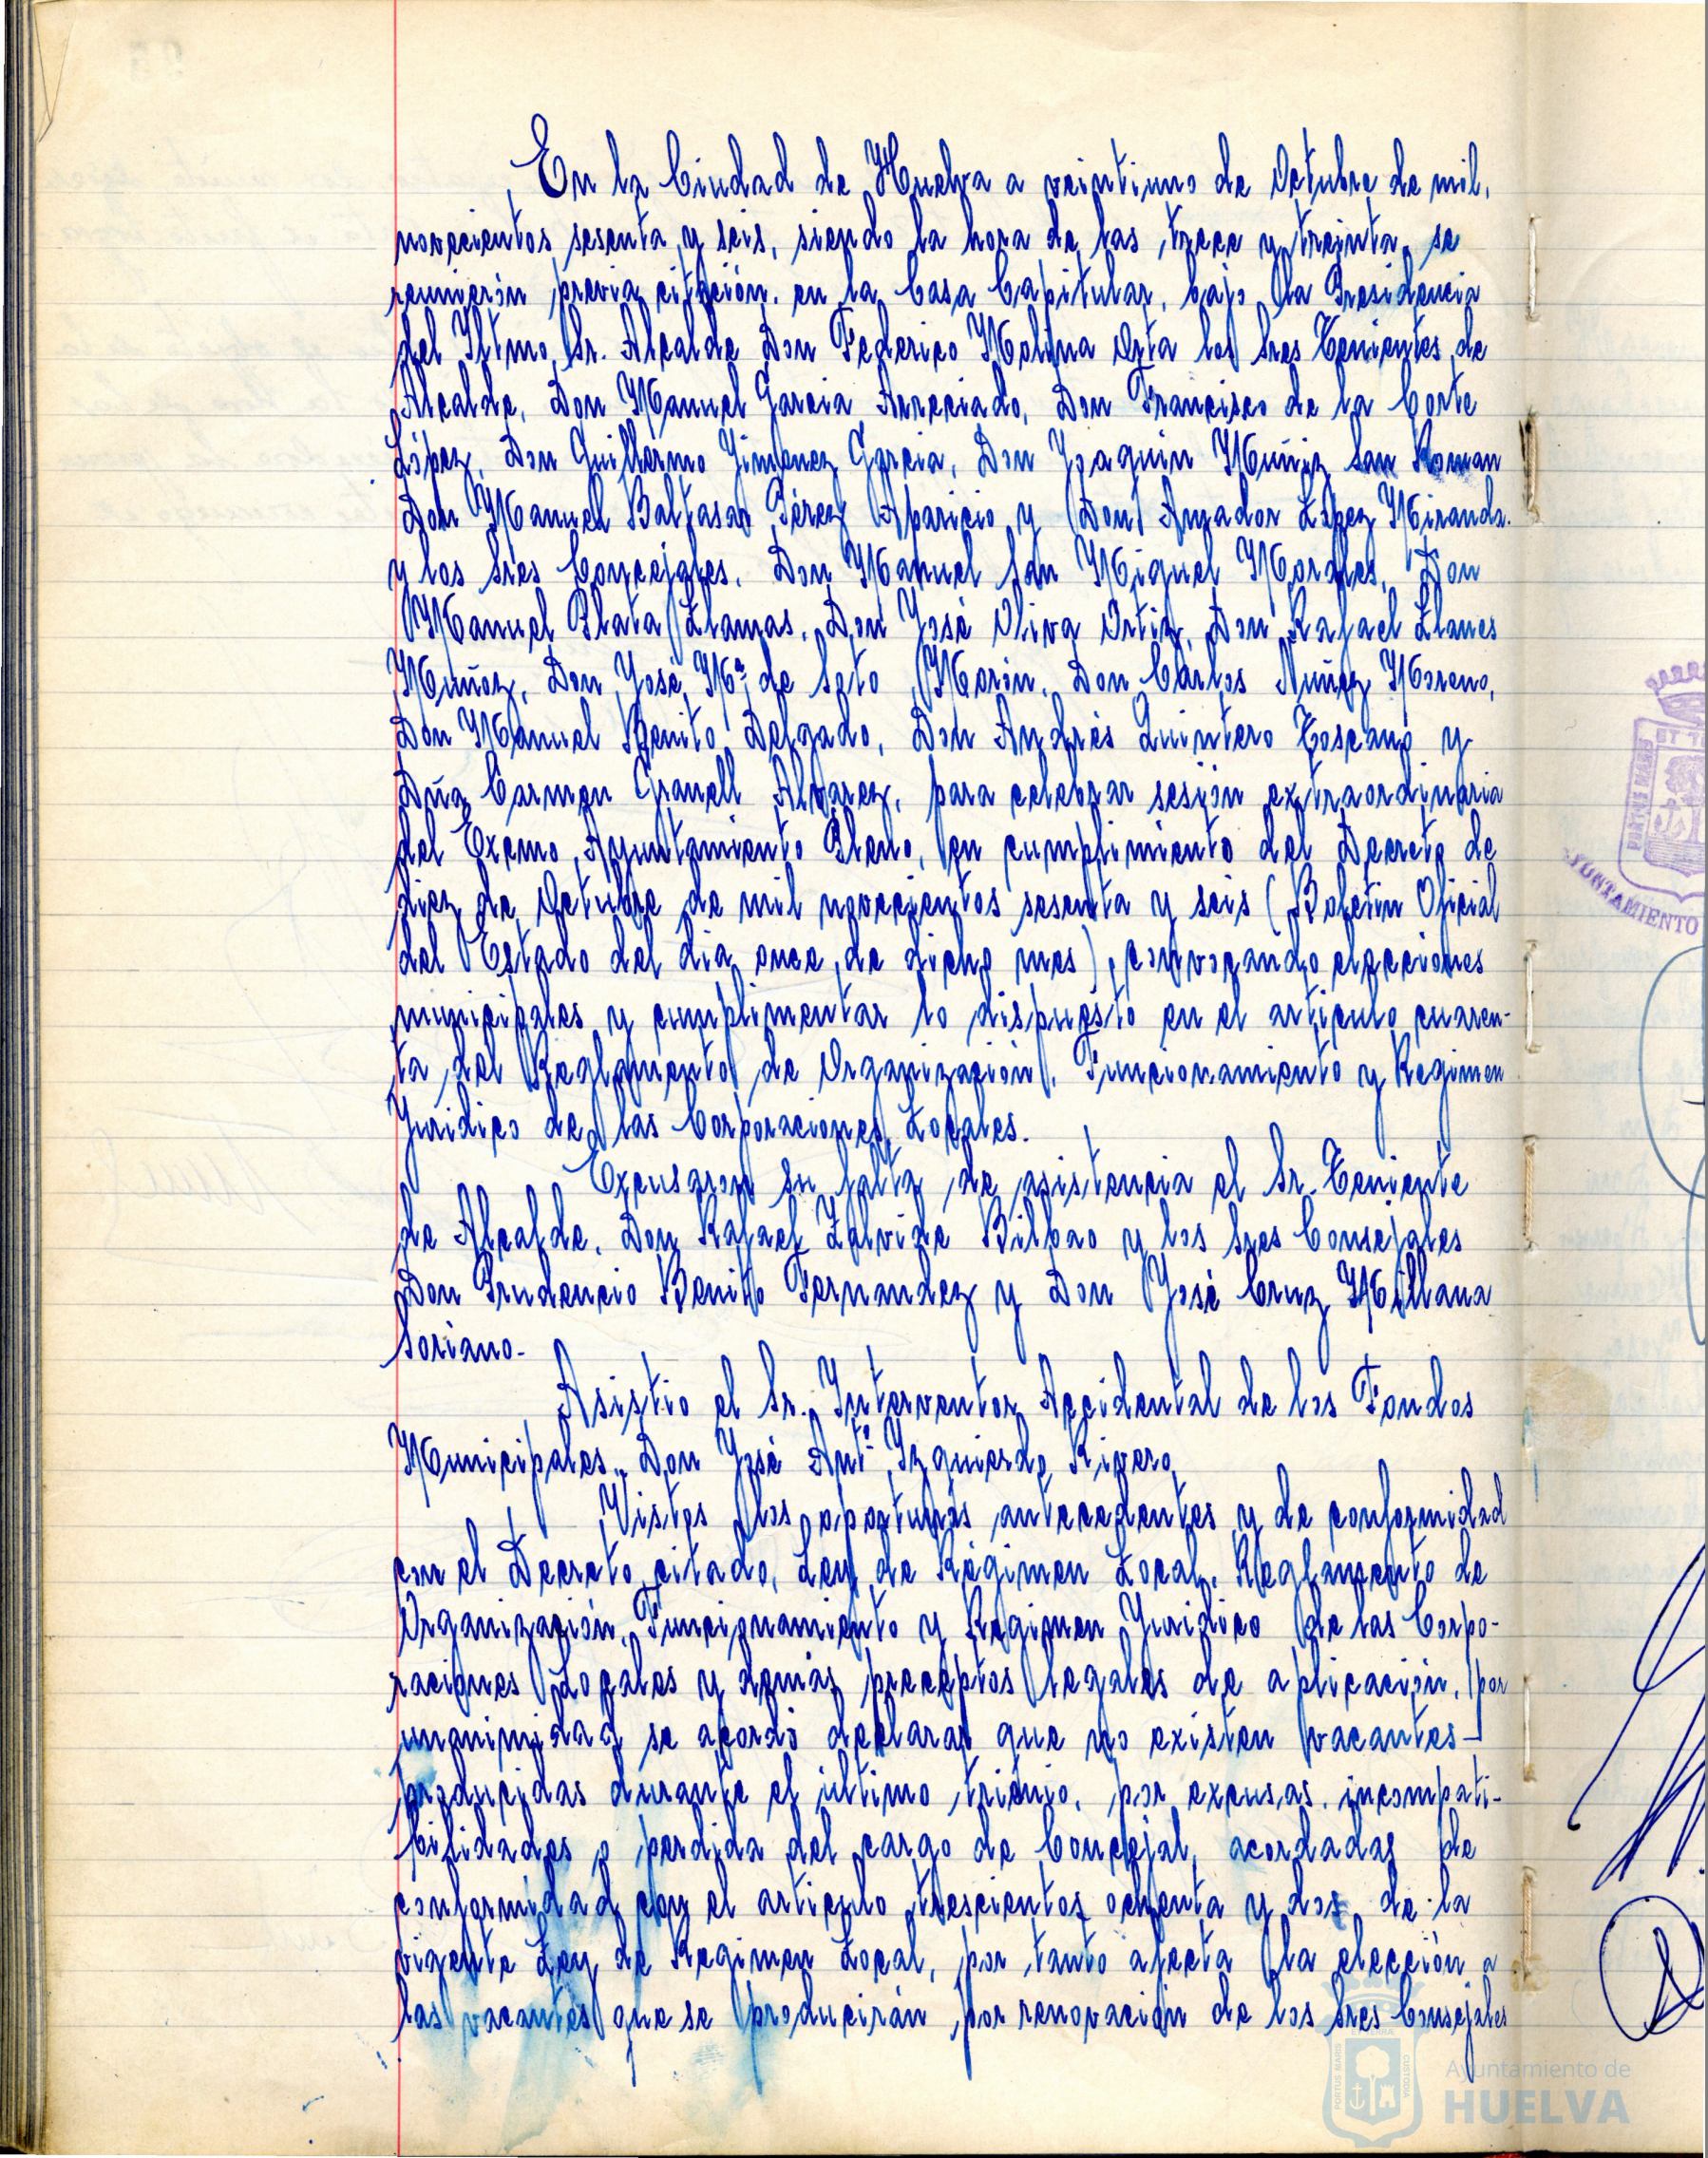 En la Ciudad de Huelva a veintiuno de Octubre de mil,
novecientos sesenta y seis, siendo la hora de las trece y treinta, se
reunierón previa citación, en la Casa Capitular, bajo la Presidencia
del Iltmo. Sr. Alcalde Don Federico Molina Orta los Sres Tenientes de
Alcalde, Don Manuel Garcia Arreciado, Don Francisco de la Corte
López, Don Guillermo Gimenez Garcia, Don Joaquin Muñiz San Roman
Don Manuel Baltasar Pérez Aparicio y Don Amador López Miranda.
y los Sres Concejales, Don Manuel San Miguel Morales, Don
Manuel Plata Llamas, Don José Oliva Ortiz, Don Rafael Llanes
Muñoz, Don José Mª de Soto Morón, Don Cárlos Nuñez Moreno,
Don Manuel Benito Delgado, Don Andrés Quintero Toscano y
Dña Carmen Granell Alvarez, para celebrar sesión extraordinaria
del Excmo. Ayuntamiento Pleno, en cumplimiento del Decreto de
diez de Octubre de mil novecientos sesenta y seis (Boletin Oficial
del Estado del dia once de dicho mes), convocando elecciones
municipales y cumplimentar lo dispuesto en el articulo cuaren-
ta del Reglamento de Organización, Funcionamiento y Regimen
Juridico de las Corporaciones Locales.
Excusaron su falta de asistencia el Sr. Teniente
de Alcalde, Don Rafael Zalvide Bilbao y los Sres Consejales
Don Prudencio Benito Fernandez y Don José Cruz Millana
Soriano.-
Asistió el Sr. Interventor Accidental de los Fondos
Municipales, Don José Antº Izquierdo Rivero,
Vistos los oportunos antecedentes y de conformidad
con el Decreto citado, Ley de Régimen Local, Reglamento de
Organización, Funcionamiento y Regimen Juridico de las Corpo-
raciones Locales y demás preceptos legales de aplicación, por
unanimidad se acordó declarar que no existen vacantes-
producidas durante el último trienio, por excusas, incompati-
bilidades o perdida del cargo de Concejal, acordadas de
conformidad con el articulo trescientos ochenta y dos de la
vigente Ley de Regimen Local, por tanto afecta la elección a
las vacantes que se producirán por renovación de los Sres Consejales
ET T
PORTUS MARIS
AYUNTAMIENTO
Ayuntamiento de
HUELVA